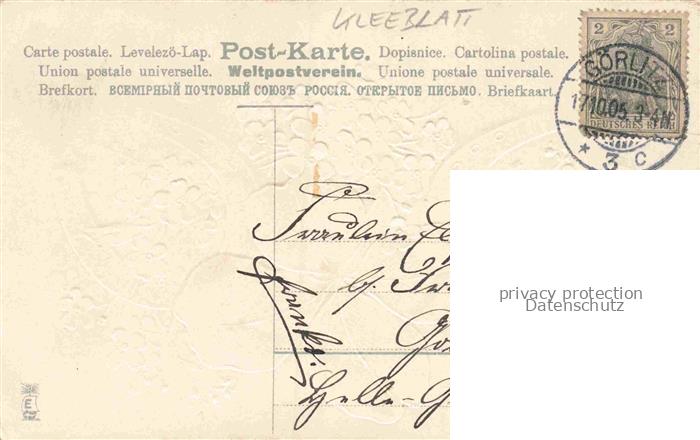 KLEEBLATT
Carte postale. Levelező-Lap. Post-Karte. Dopisnice. Cartolina postale.
Union postale universelle. Weltpostverein. Unione postale universale.
Brefkort. ВСЕМІРНЫЙ ПОЧТОВЫЙ СОЮЗЪ РОССІЯ. ОТКРЫТОЕ ПИСЬМО. Briefkaart.
2 2
DEUTSCHES REICH
GÖRLITZ
17.10.05. 3-4N
* 3 c
Fräulein
franko.
Helle-
privacy protection
Datenschutz
E